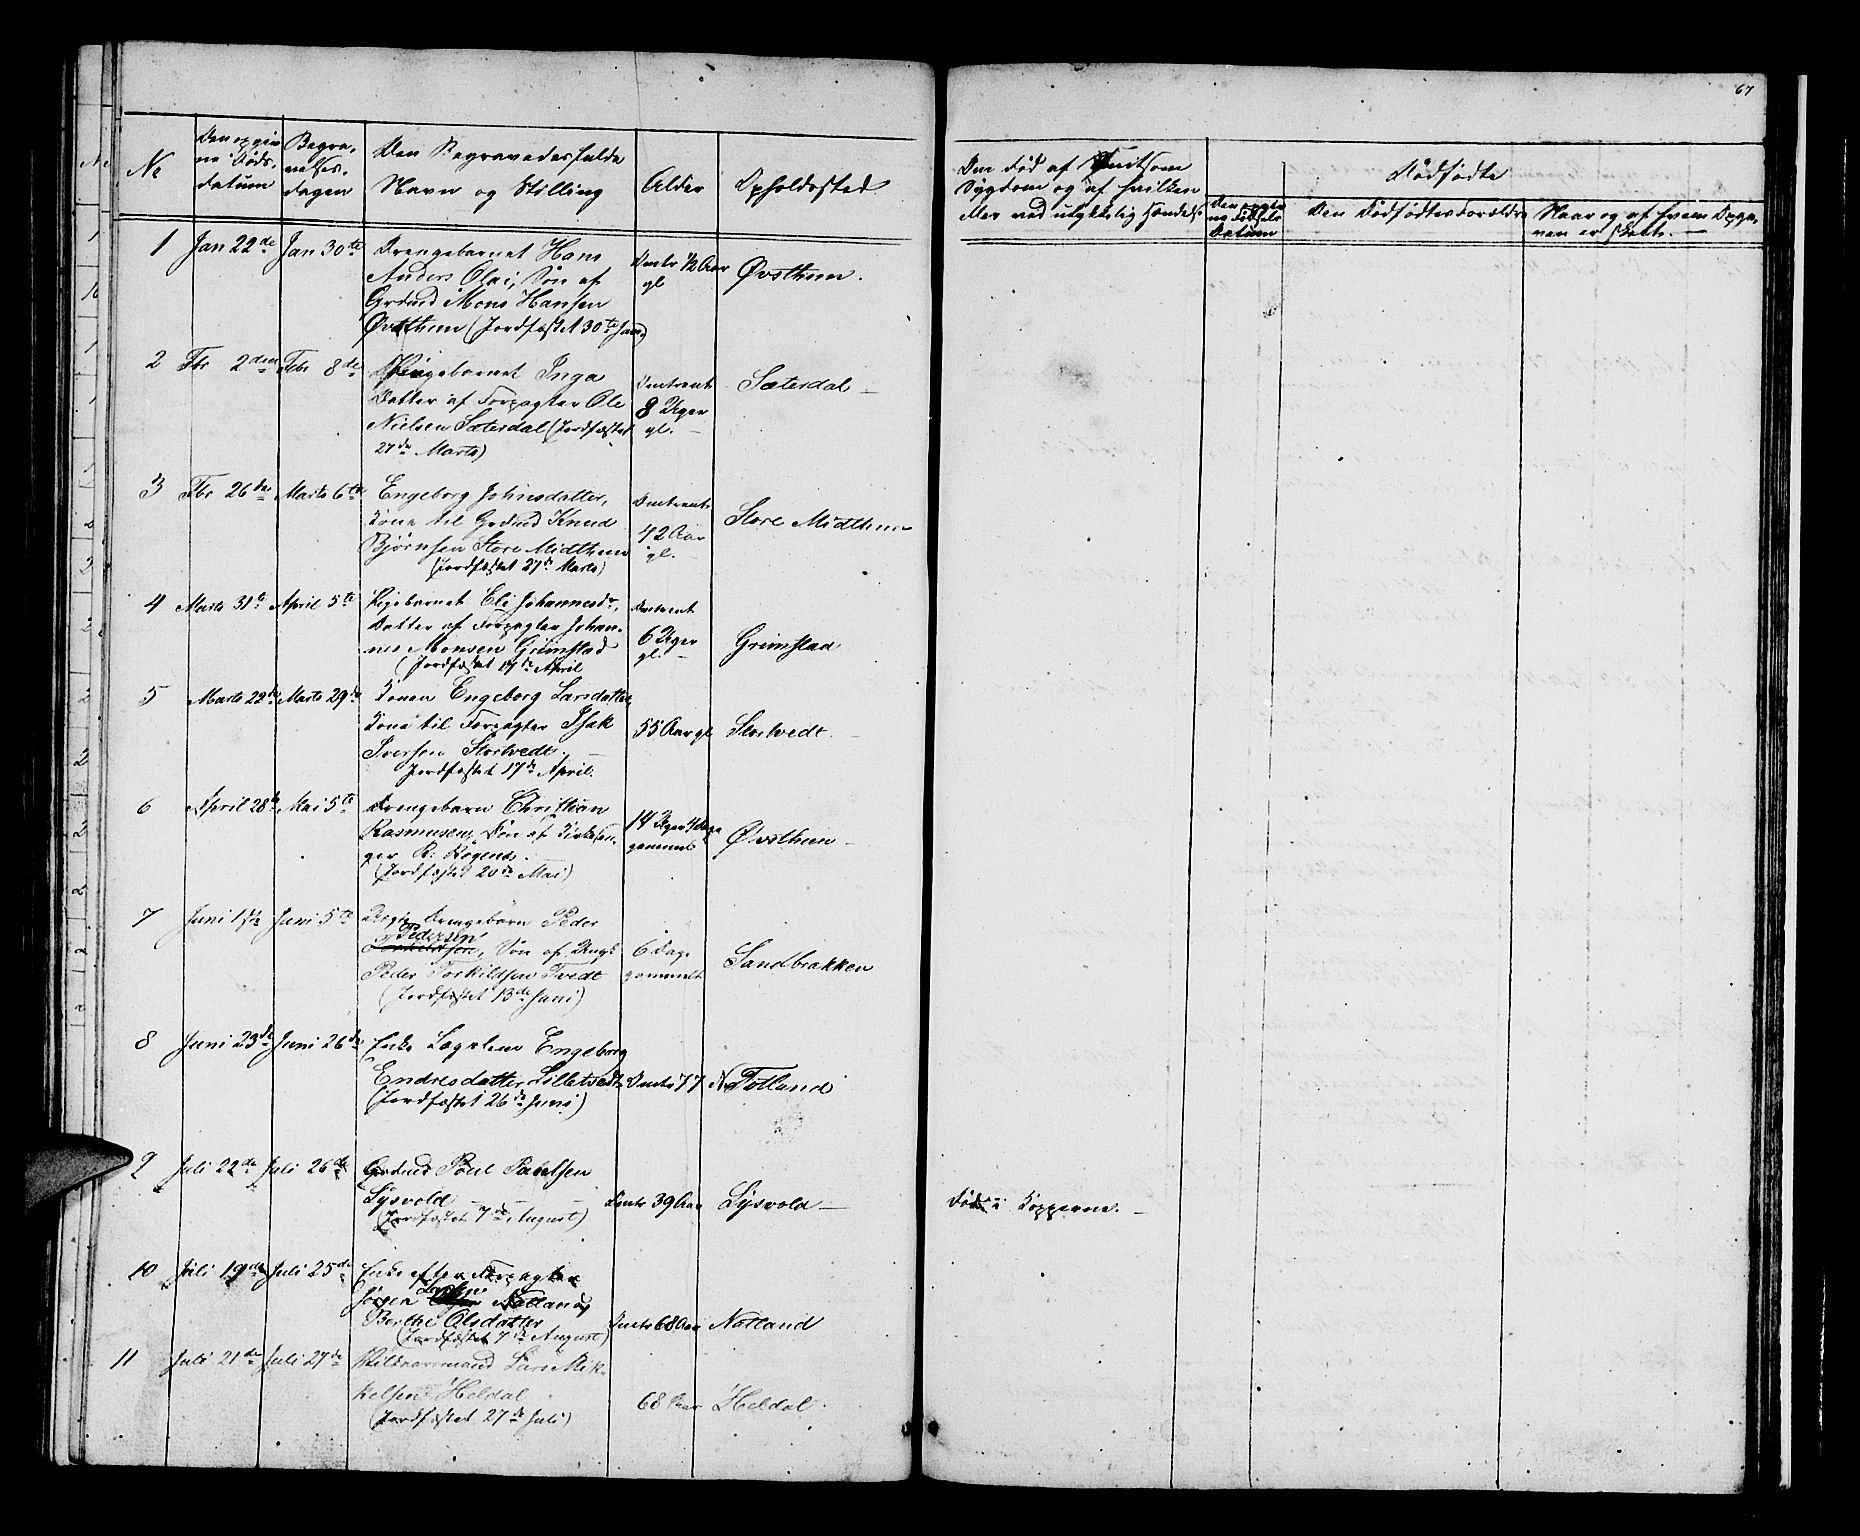 67
No
Den opgivne Døds-datum
Begravelsesdagen
Den Begravedes fulde
Navn og Stilling
Alder
Opholdssted
Om død af Smitsom
Sygdom og af hvilken
eller ved ulykkelig Hændelse
Dødfødte
Den opgivne Fødsels Datum
Den Dødfødtes Forældre
Naar og af hvem Opgaven er skeet.
1 Jan 22de Jan 30te Drengebarnet Hans
Anders Olai, Søn af
Grdmd Mons Hansen
Øvsthun (Jordfæstet 30te Jan)
Omtr ½ Aar gl
Øvsthun.
2 Fbr 2den Febr 8de Pigebarnet Inga
Datter af Forpagter Ole
Nielsen Sætersdal (Jordfæstet
27de Marts)
Omtrent
8 Uger
gl.
Sætersdal
3 Fbr 26de Marts 6te Engeborg Johnsdatter,
Kone til Grdmd Knud
Bjørnsen Store Midthun
(Jordfæstet 27de Marts)
Omtrent
42 Aar
gl.
Store Midthun
4 Marts 31te April 5te Pigebarnet Eli Johannesdr,
Datter af Forpagter Johan-
nes Monsen Grimstad
(Jordfæstet 17de April
Omtrent
6 Uger
gl.
Grimstad
5 Marts 22de Marts 29de Konen Engeborg Larsdatter
Kone til Forpagter Isak
Iversen Storetvedt.
Jordfæstet 17de April.
55 Aar gl
Stortvedt
6 April 28de Mai 5te Drengebarn Christian
Rasmusen, Søn af Kirkesan-
ger R.
(Jordfæstet 20de Mai)
14 Uger 4 Dage
gammel
Øvsthun
7 Juni 1ste Juni 5te Drengebarn Peder
Pedersen
Torkildsen, Søn af Ungk
Peder Torkildsen Tvedt
(Jordfæstet 13de Juni)
6 Dage
gammelt
Sandbrækken
8 Juni 23de Juni 26de Enke Lægdlem Engeborg
Endresdatter Lilletvedt
(Jordfæstet 26de Juni)
Omtr 77
N. Totland
9 Juli 22de Juli 26de Grdmd Poul Paulsen
Lysvold
(Jordfæstet 7de August)
Omtr 39 Aar
Lysvold
Død i Kopperne.
10 Juli 19de Juli 25de Enke efter Forpagter
Jørgen Natland
Berthe Olsdatter
(Jordfæstet 7de August)
Omtr 68 Aar
Natland
11 Juli 21de Juli 27de Kildaarsmand Lars Mik-
kelsen Heldal
(Jordfæstet 27de Juli)
68 Aar
Heldal.